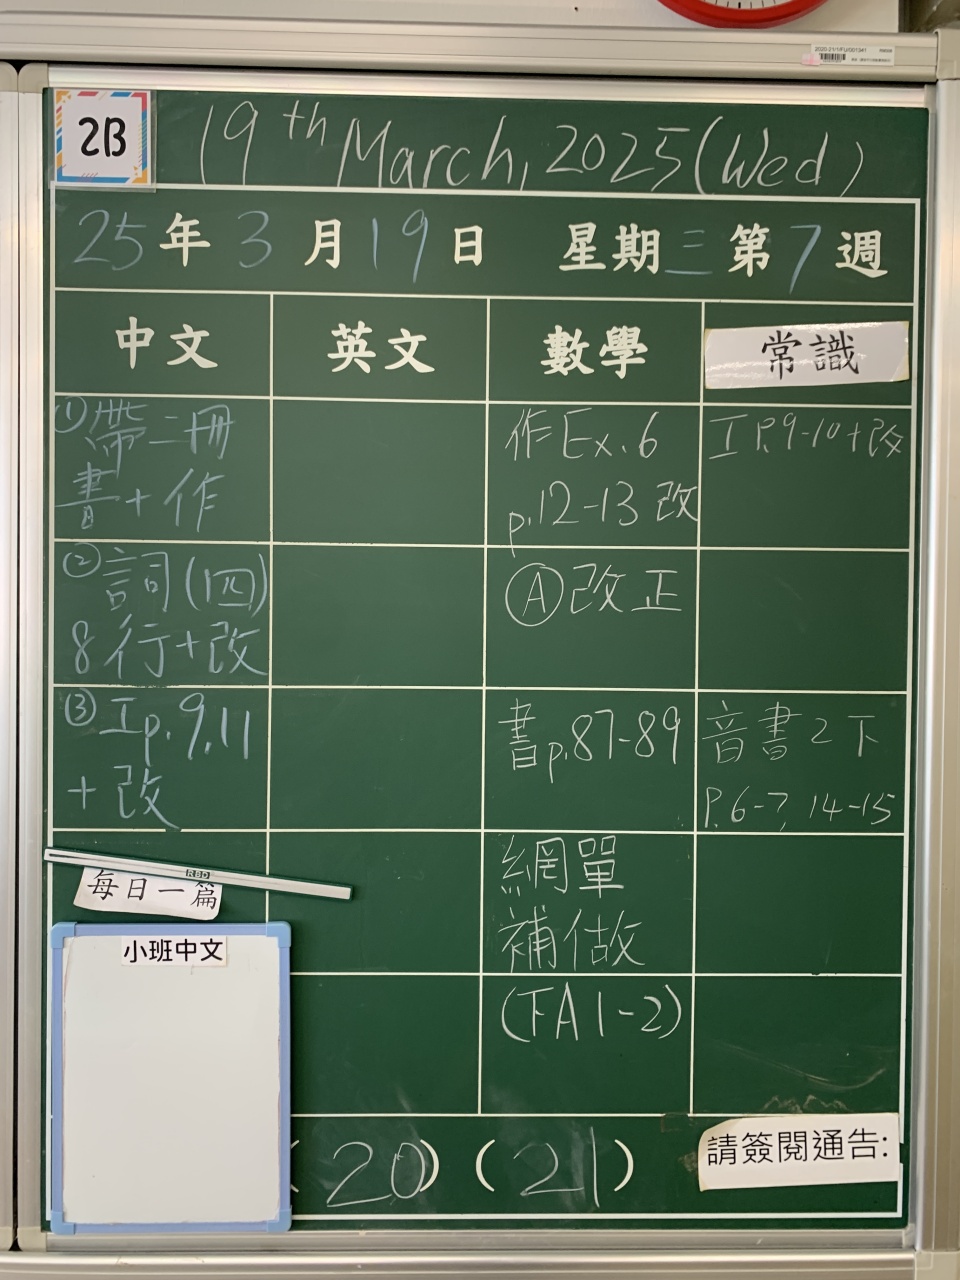 2020-21/1/FU/001341
2B
19th March, 2025 (Wed)
25年3月19日 星期三第7週
中文 英文 數學 常識
①帶二冊
書+作
作Ex.6
p.12-13 改
工P.9-10+改
②詞(四)
8行+改
Ⓐ改正
③工p.9,11
+改
書p.87-89
音書2下
P.6-7, 14-15
網單
補做
(下A1-2)
RBD
每日一篇
小班中文
(20) (21)
請簽閱通告: